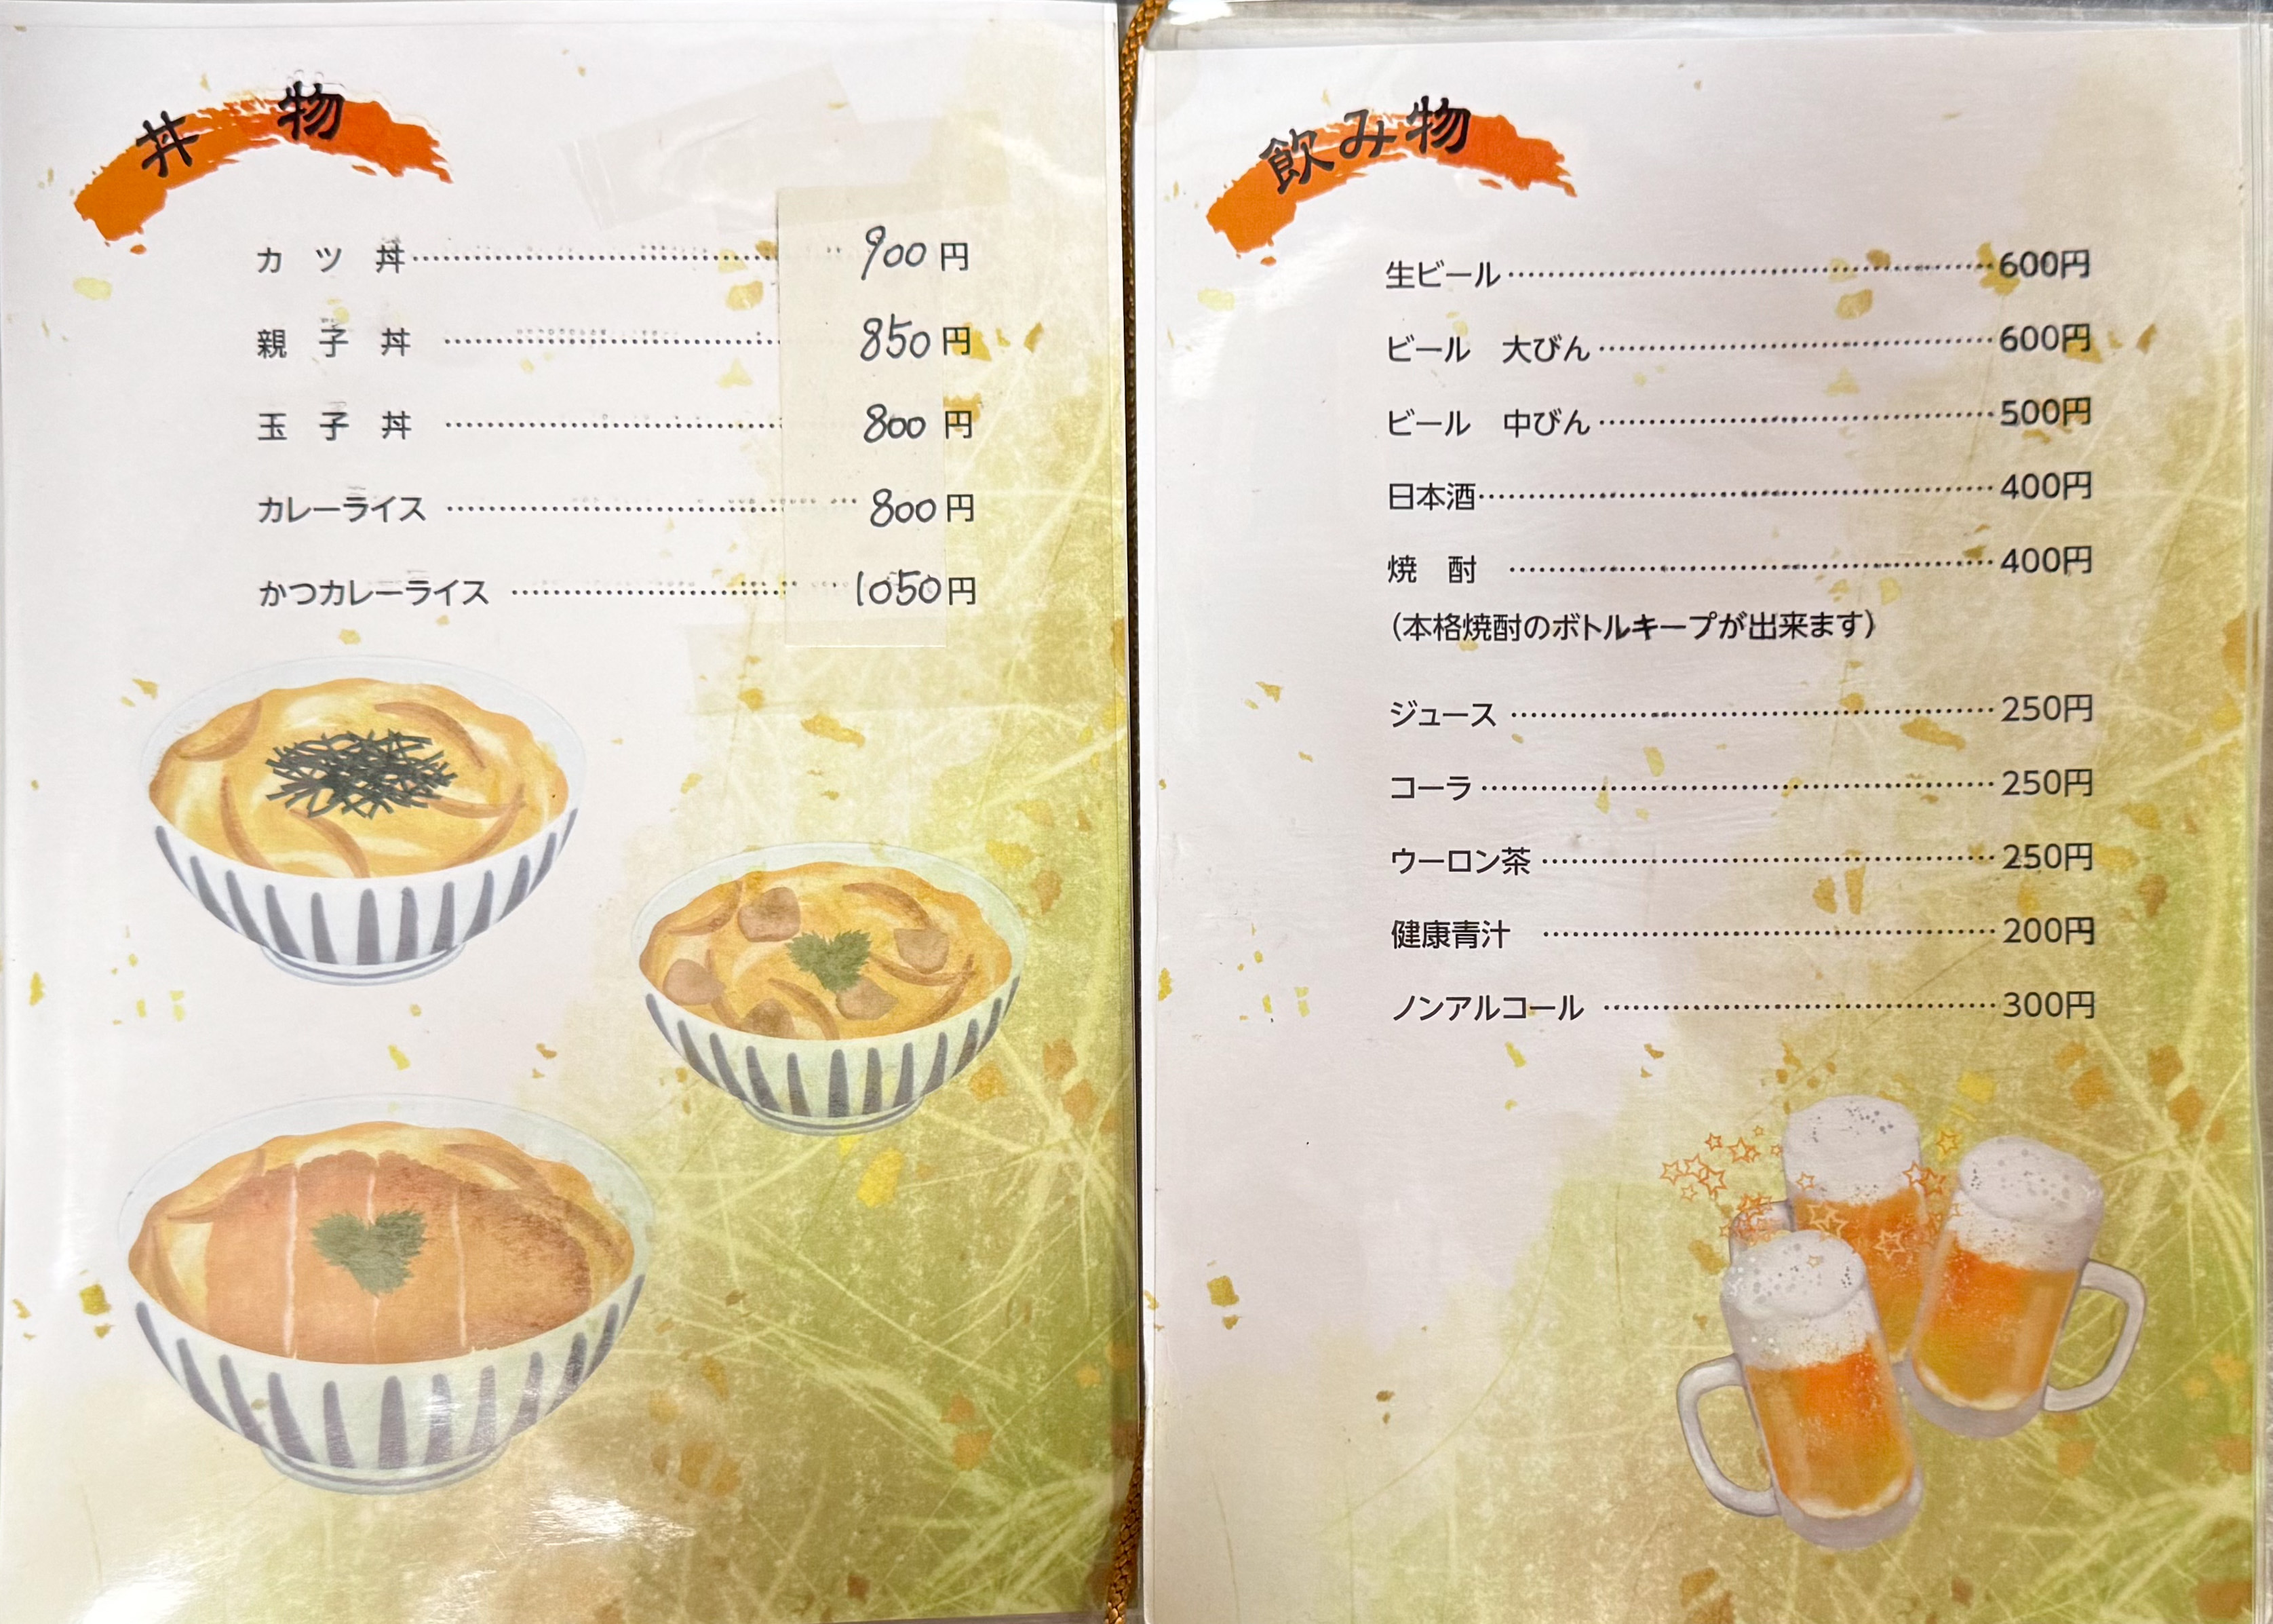 丼 物
カ ツ 丼 900円
親 子 丼 850円
玉 子 丼 800円
カレーライス 800円
かつカレーライス 1050円
飲み物
生ビール 600円
ビール 大びん 600円
ビール 中びん 500円
日本酒 400円
焼 酎 400円
（本格焼酎のボトルキープが出来ます）
ジュース 250円
コーラ 250円
ウーロン茶 250円
健康青汁 200円
ノンアルコール 300円